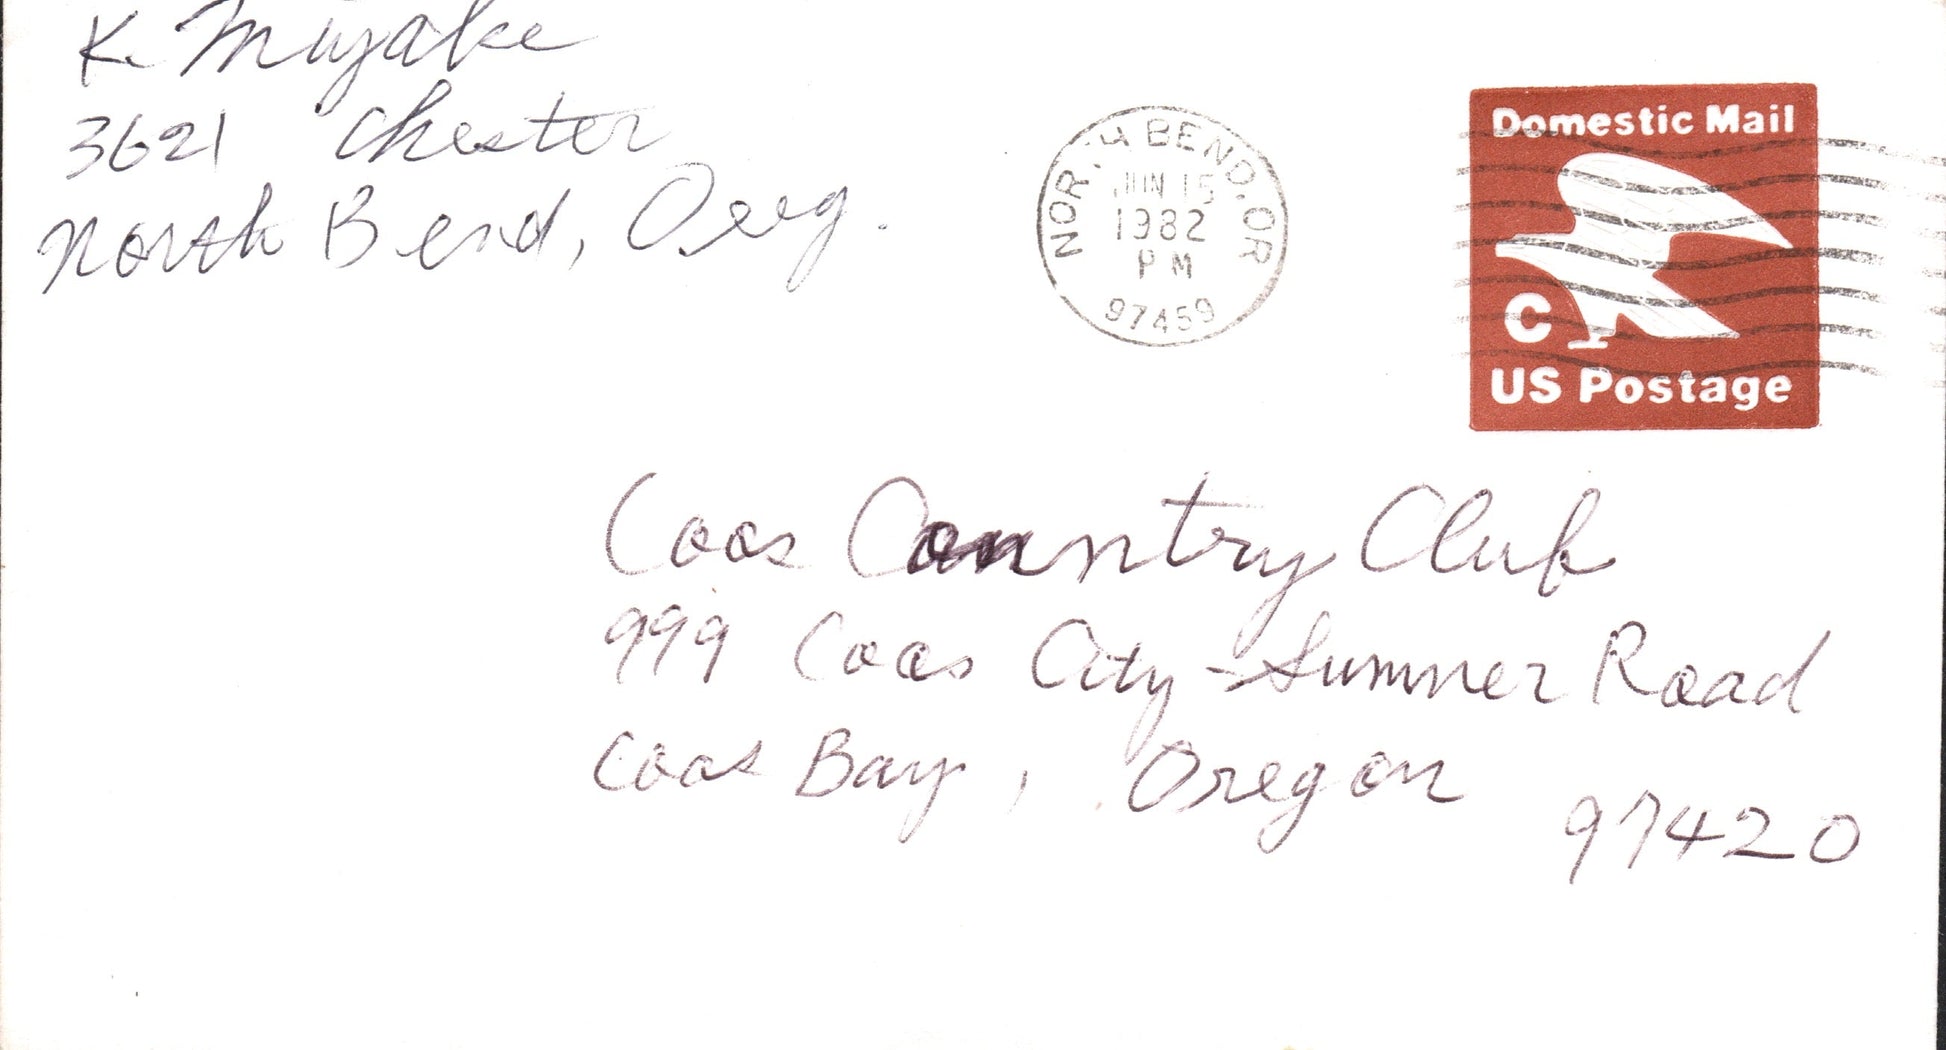 K. Miyake
3621 Chester
North Bend, Oreg.
NORTH BEND, OR
JUN 15
1982
PM
97459
Domestic Mail
C
US Postage
Coos Country Club
999 Coos City-Sumner Road
Coos Bay, Oregon
97420